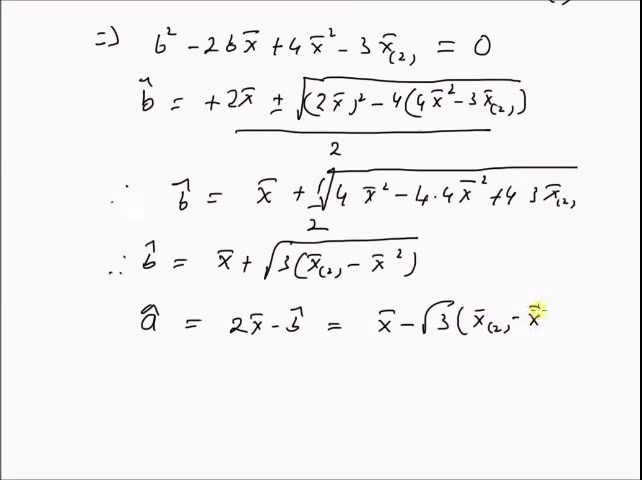 ⇒ b² - 2b x̄ + 4x̄² - 3x̄₍₂₎ = 0
b̂ = +2x̄ ± √((2x̄)² - 4(4x̄² - 3x̄₍₂₎)) / 2
∴ b̂ = x̄ + 1/2 √(4x̄² - 4·4x̄² + 4 3x̄₍₂₎)
∴ b̂ = x̄ + √(3(x̄₍₂₎ - x̄²))
â = 2x̄ - b̂ = x̄ - √3(x̄₍₂₎ - x̄